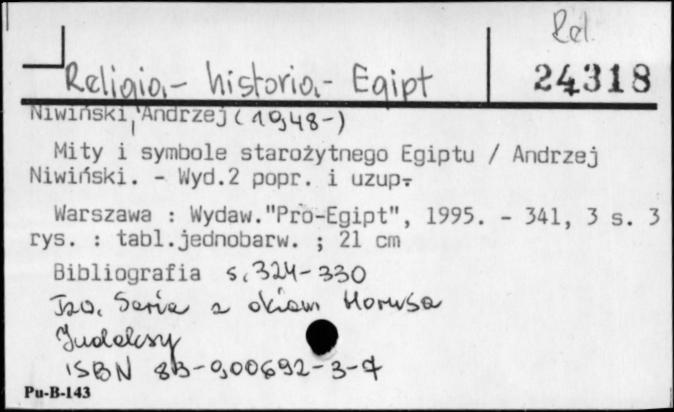 Rel.
Religia - historia - Egipt
24318
Niwiński, Andrzej (1948-)
Mity i symbole starożytnego Egiptu / Andrzej
Niwiński. - Wyd.2 popr. i uzup.
Warszawa : Wydaw."Pro-Egipt", 1995. - 341, 3 s. 3
rys. : tabl.jednobarw. ; 21 cm
Bibliografia s. 324-330
Tzw. Seria z okiem Horusa
Indeksy
ISBN 83-900692-3-4
Pu-B-143